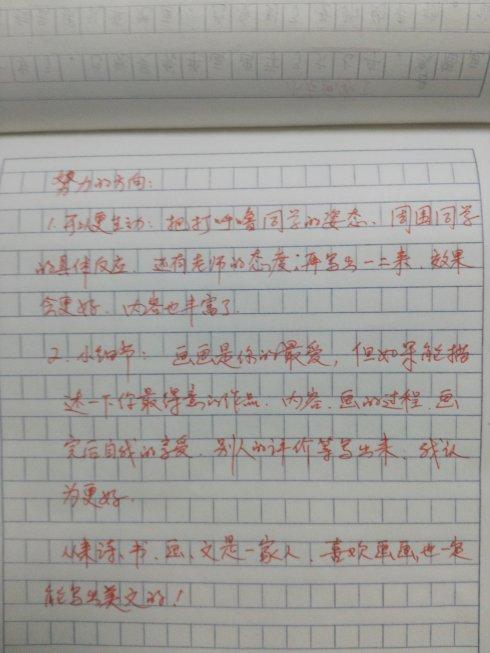 努力的方向:
1.可以更生动: 把打呼噜同学的姿态、周围同学
的具体反应、还有老师的态度;再写出一二来,效果
会更好,内容也丰富了.
2.小细节: 画画是你的最爱,但如果能描
述一下你最得意的作品、内容、画的过程、画
完后自我的享受、别人的评价等写出来,我认
为更好.
从来诗、书、画、文是一家人,喜欢画画,也一定
能写出美文的!